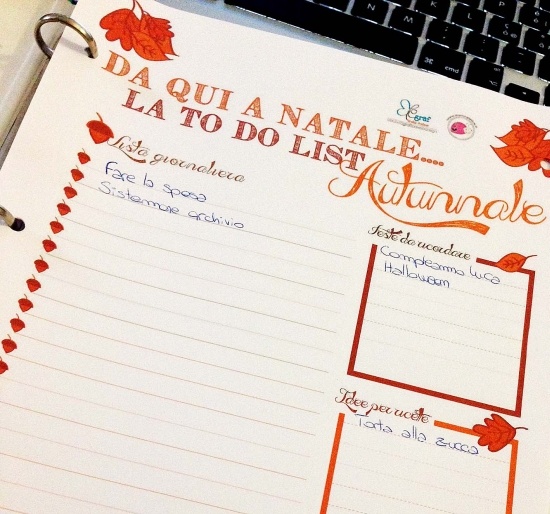 DA QUI A NATALE....
LA TO DO LIST
Autunnale
Lista giornaliera
Fare la spesa
Sistemare archivio
Feste da ricordare
Compleanno Luca
Halloween
Idee per ricette
Torta alla zucca
cmd